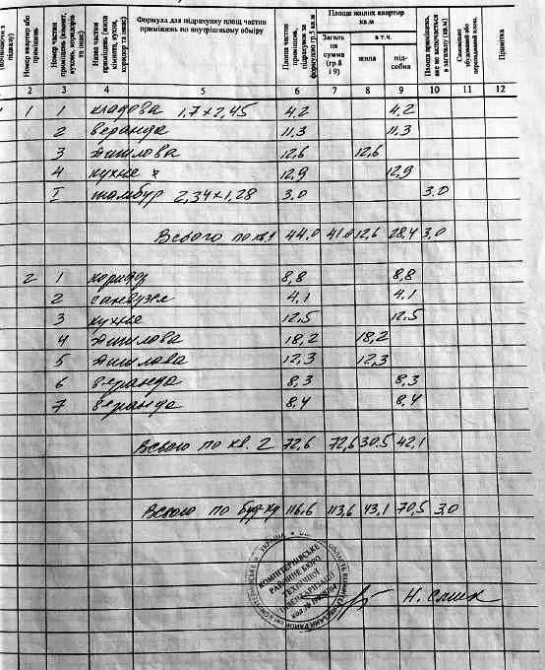 Номер квартир або приміщень
Номер частин приміщень (кімнат, кухонь, коридорів та інше)
Назва частин приміщень (жила кімната, кухня, коридор та інше)
Формула для підрахунку площ частин приміщень по внутрішньому обміру
Площа частин приміщень підрахунок за формулою гр.5 кв.м
Площа жилих квартир кв.м
Загальна сумма (гр 8 і 9)
в т.ч.
жила
підсобна
Площа приміщень, яке не включається в загальну (кв.м)
Самовільно збудований або
Примітка
2 3 4 5 6 7 8 9 10 11 12
1 1 кладова 1,7×2,45 4,2 4,2
2 веранда 11,3 11,3
3 житлова 12,6 12,6
4 кухня 12,9 12,9
I тамбур 2,34×1,28 3,0 3.0
Всього по кв.1 44.0 41.0 12,6 28.4 3,0
2 1 коридор 8,8 8,8
2 санвузел 4,1 4,1
3 кухня 12.5 12.5
4 житлова 18,2 18,2
5 житлова 12,3 12,3
6 веранда 8,3 8,3
7 веранда 8,4 8,4
Всього по кв. 2 72,6 72,6 30.5 42,1
Всього по буд-ку 116.6 113,6 43,1 70,5 3.0
КОМІНТЕРНІВСЬКЕ
РАЙОННЕ БЮРО
ТЕХНІЧНОЇ
ІНВЕНТАРИЗАЦІЇ